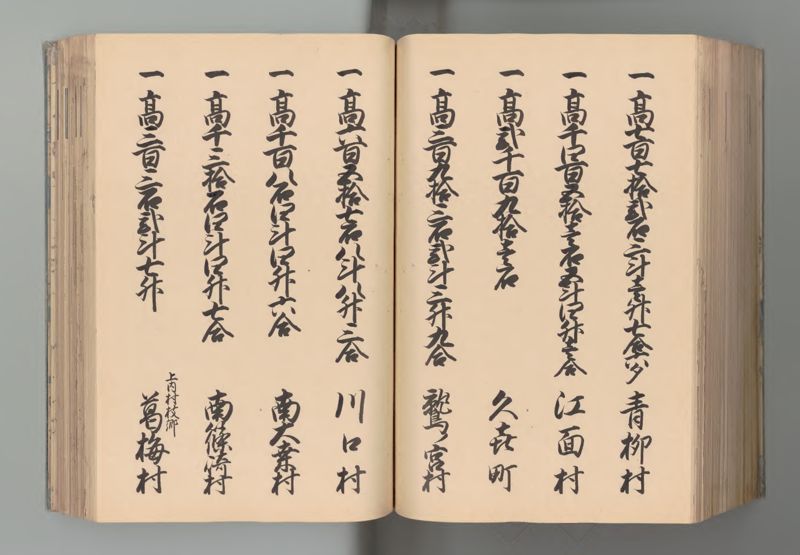 一 高七百七拾弐石三斗壱升七合六夕 青柳村
一 高千四百五拾壱石五斗四升壱合 江面村
一 高弐千百九拾壱石 久㐂町
一 高三百九拾三石弐斗三升九合 鷲ノ宮村
一 高六百五拾七石八斗八升三合 川口村
一 高千百八石四斗四升六合 南大桑村
一 高千三拾石四斗四升七合 南篠崎村
一 高三百三石弐斗七升 上内村枝郷 葛梅村